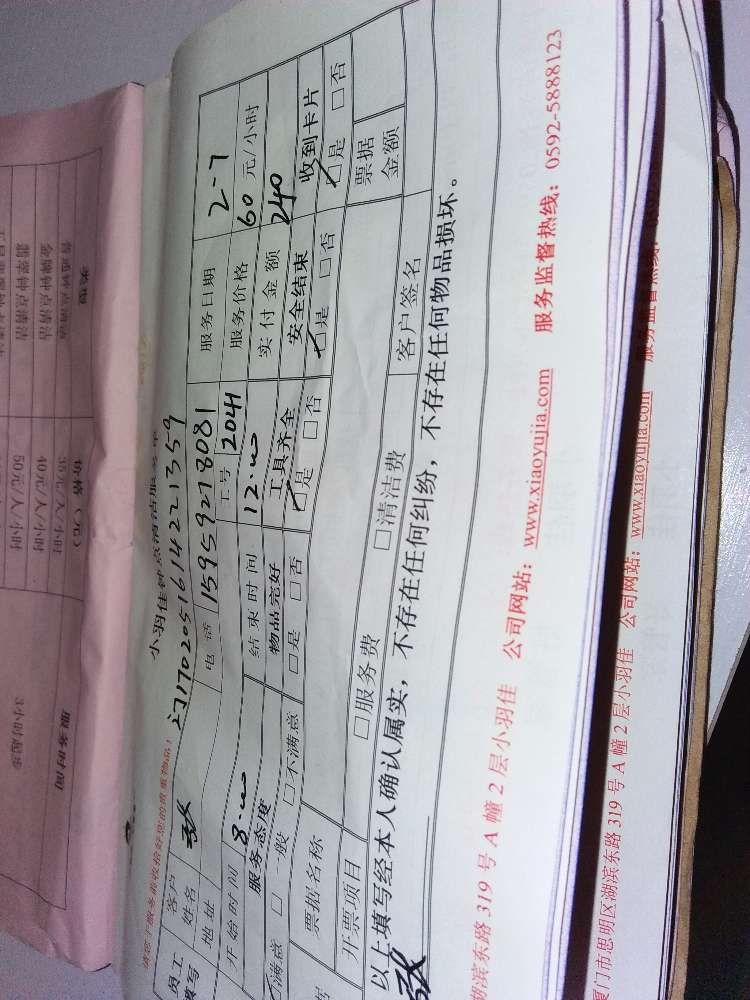 小羽佳钟点清洁服务单
请您于服务前收拾好您的贵重物品!
门1702051614221359
员工填写
客户姓名 张 电话 15959278081 服务日期 2-7
地址 工号 2041 服务价格 60 元/小时
开始时间 8:00 结束时间 12:00 实付金额 240
服务态度 物品完好 工具齐全 安全结束 收到卡片
☑满意 □一般 □不满意 □是 □否 ☑是 □否 ☑是 □否 ☑是 □否
票据名称 票据金额
开票项目 □服务费 □清洁费 客户签名
以上填写经本人确认属实,不存在任何纠纷,不存在任何物品损坏。
张
湖滨东路 319 号 A 幢 2 层小羽佳 公司网站: www.xiaoyujia.com 服务监督热线: 0592-5888123
厦门市思明区湖滨东路 319 号 A 幢 2 层小羽佳 公司网站: www.xiaoyujia.com 服务监督热线:
类型 价格(元) 服务时间
普通钟点清洁 35元/人/小时 3小时起步
金牌钟点清洁 40元/人/小时
翡翠钟点清洁 50元/人/小时